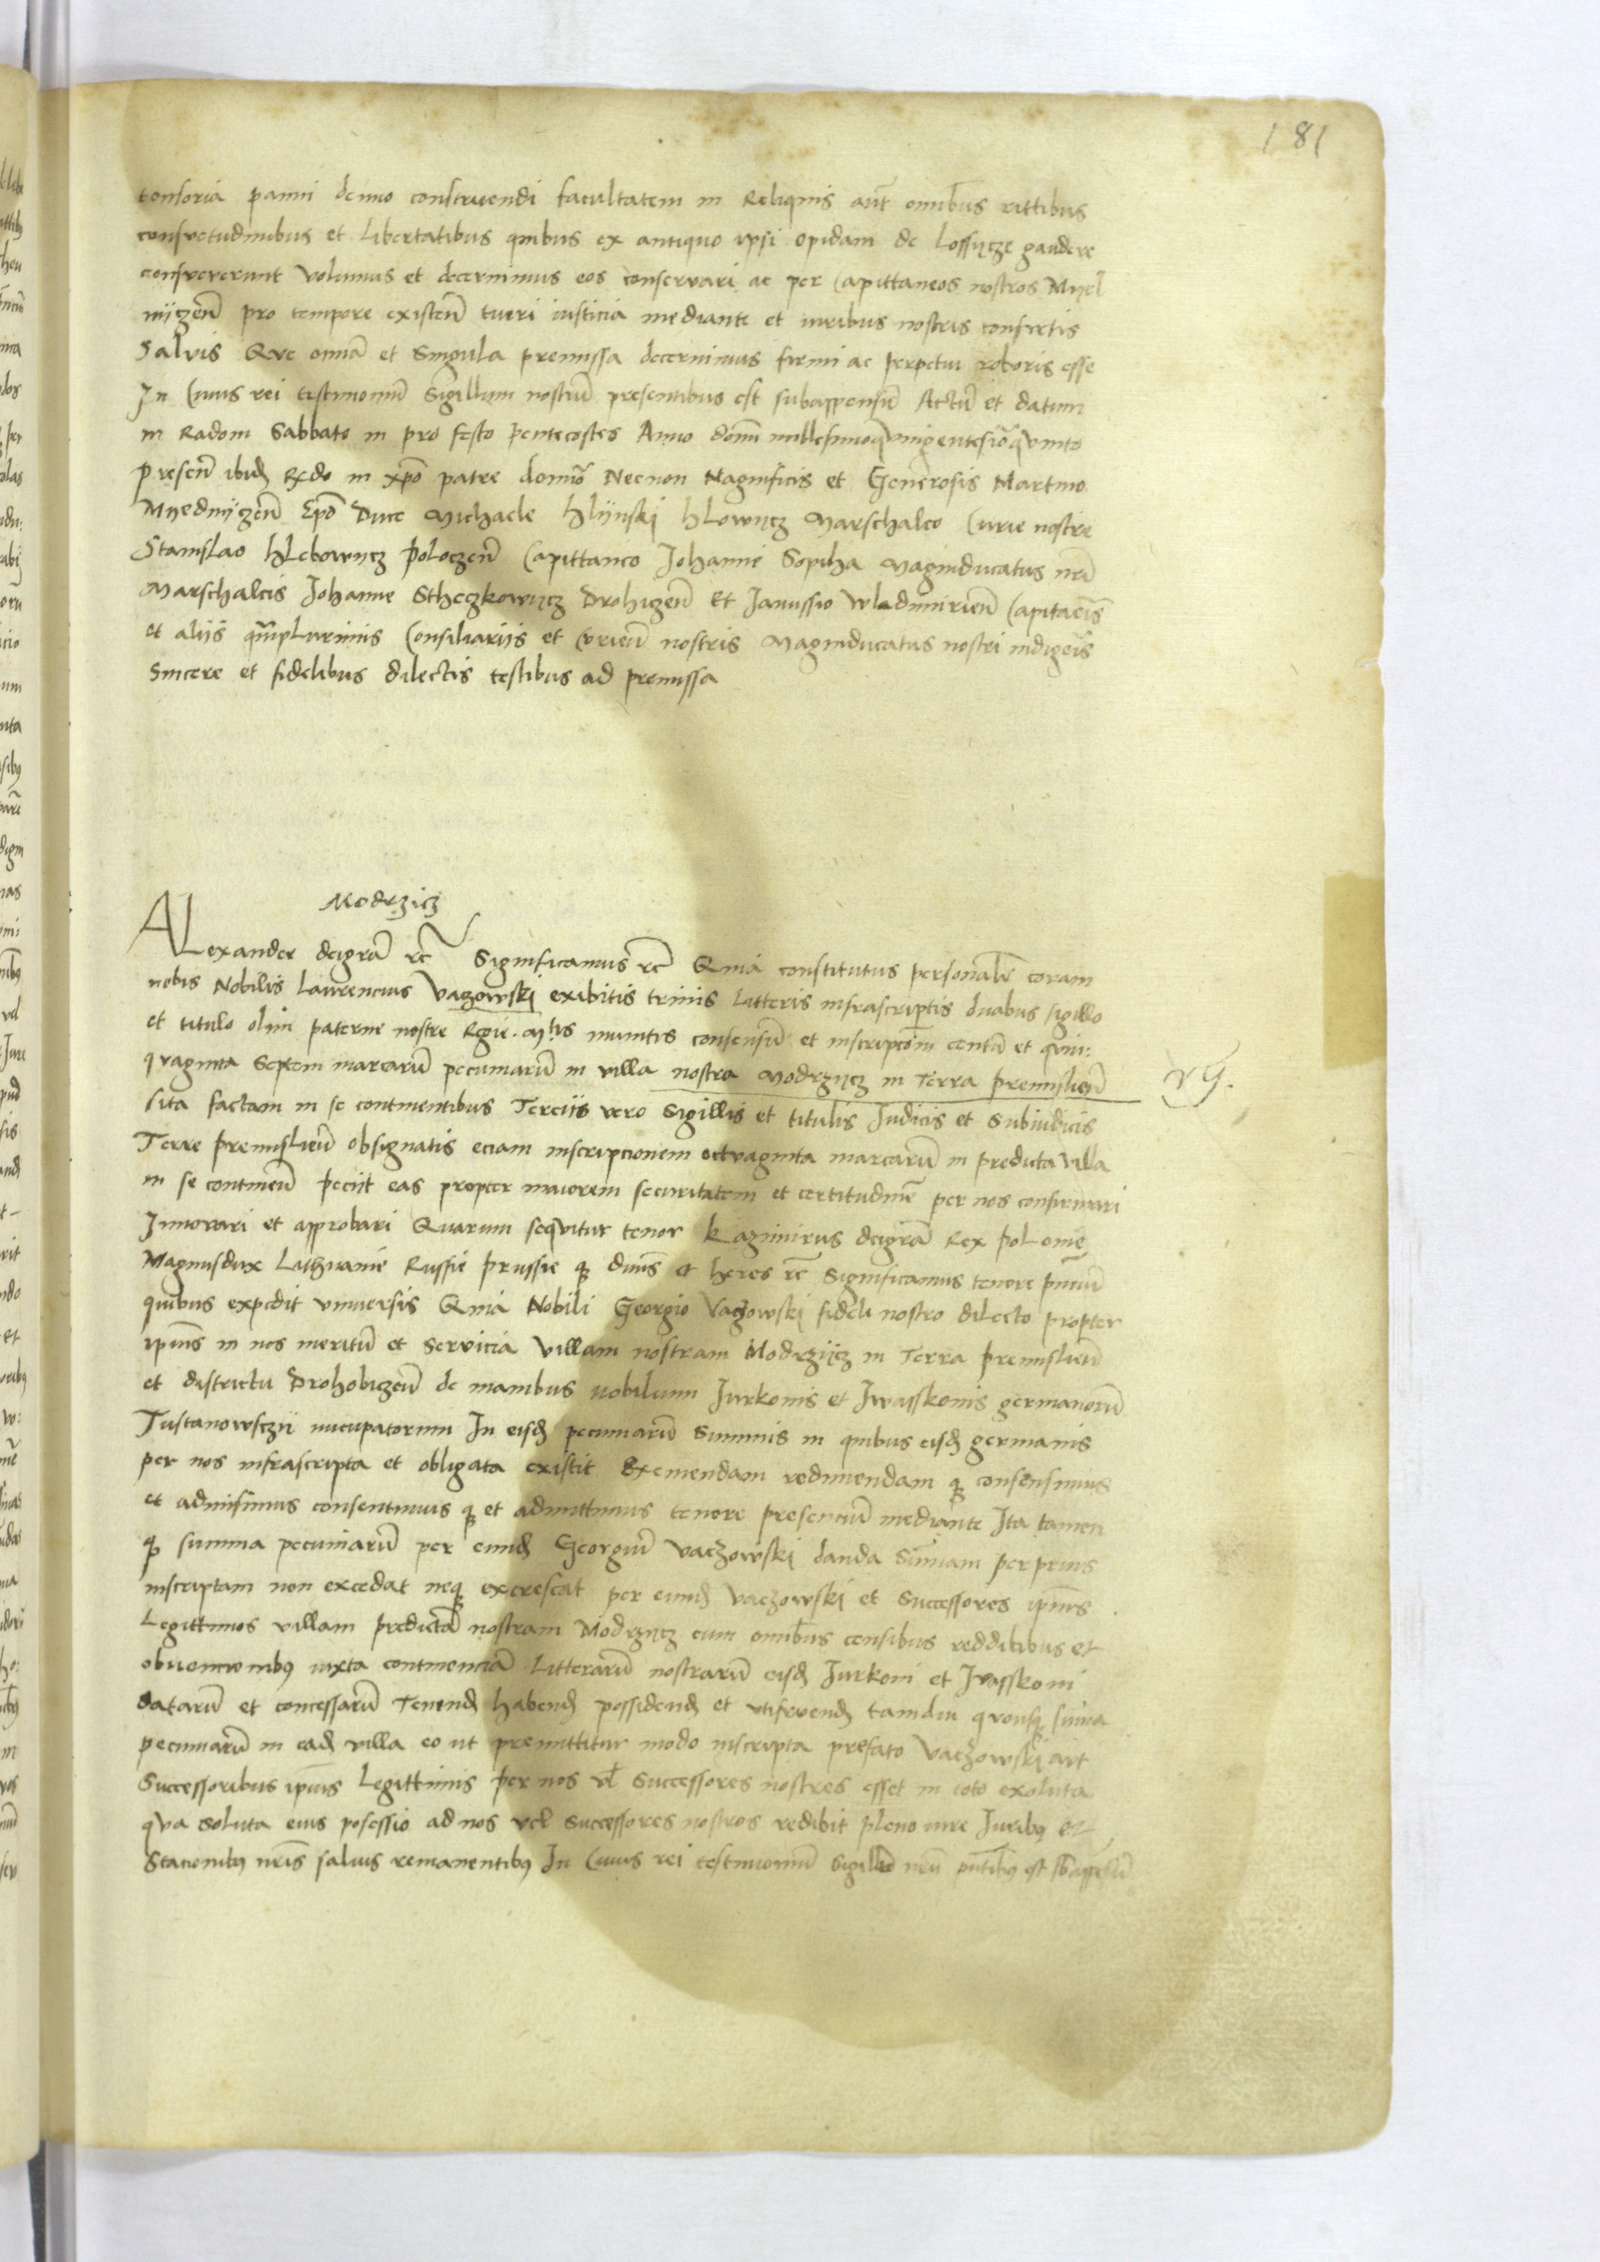 181
tonsoria panni denuo construendi facultatem in Reliquis aut̃ omibus rittibus
consvetudinibus et Libertatibus quibus ex antiquo ipsi opidani de Lossycze gaudere
consveverunt volumus et decernimus eos conservari ac per Capittaneos nostros Myel
niczen̄ pro tempore existen̄ tueri iusticia mediante et iuribus nostris consuetis
Salvis Que omīa et Singula premissa decernimus firmi ac perpetui roboris esse
In Cuius rei testimoniū Sigillum nostrū presentibus est subappensū Actū et datum
in Radom Sabbato in pro festo pentecostes Anno domī millesimoqvingentesimoqvinto
presen̄ ibid Rdo in xpō patre domīo Necnon Magnificis et Generosis Martino
Myednyczen̄ Epō Duce Michaele Hlynski Hlowycz Marschalco Curie nostre
Stanislao Hlebowycz poloczen̄ Capittaneo Johanne Sopiha Magniducatus nrī
Marschalcis Johanne Stheczkowycz Drohiczen̄ Et Janussio Wladimirien̄ Capitaneis
et aliis qmplurimis Consiliariis et Curien̄ nostris Magniducatus nostri indigenis
Sincere et fidelibus dilectis testibus ad premissa
Modrzicz
ALexander deigrā rc̄ Significamus rc̄ Quia constitutus personalr̄ coram
nobis Nobilis Laurencius Vaczowski exibitis trinis Litteris infrascriptis duabus sigillo
et titulo olim paterne nostre Regie Mtis munitis consensū et inscripcōm centū et quin:
qvaginta Septem marcarū pecuniarū in villa nostra Modrzycz in Terra premislien̄
sita factam in se continentibus Terciis vero Sigillis et titulis Judicis et Subiudicis
Terre premislien̄ obsignatis eciam inscripcionem octvaginta marcarū in predicta villa
in se continen̄ peciit eas propter maiorem securitatem et certitudinē per nos confirmari
Innovari et approbari Quarum seqvitur tenor Kazimirus deigrā Rex polonie
Magnusdux Lithvanie Russie prussie q dnūs et heres rc̄ Significamus tenore pn̄ciū
quibus expedit vniversis Quia Nobili Georgio Vaczowski fideli nostro dilecto propter
ipius in nos meritū et Servicia Villam nostram Modrzycz in Terra premislien̄
et districtu Drohobiczen̄ de manibus nobilium Jurkonis et Jwasskonis germanorū
Tustanowsczii nucupatorum In eisd pecuniarū Summis in quibus eisd germanis
per nos infrascripta et obligata existit Exemendam redimendam q consensimus
et admisimus consentimus q et admittimus tenore presenciū mediante Ita tamen
q summa pecuniarū per eund Georgiū Vaczowski danda Sumam per prius
inscriptam non excedat neq excrescat per eund Vaczowski et Successores ipius
Legittimos villam predictā nostram Modrzycz cum omībus censibus redditibus et
obvencionibus iuxta continenciā Litterarū nostrarū eisd Jurkoni et Jvasskoni
datarū et concessarū Tenend habend possidend et utifruend tamdiu qvousq suma
pecuniarū in ead villa eo ut premittitur modo inscripta prefato Vaczowski aut
Successoribus ipius Legittimis per nos vel Successores nostros esset in toto exoluta
qva soluta eius posessio ad nos vel Successores nostros redibit pleno iure Juribus et
Stacionibus nris salvis remanentibus In Cuius rei testimoniū Sigillū nrū pntibus est subappensū